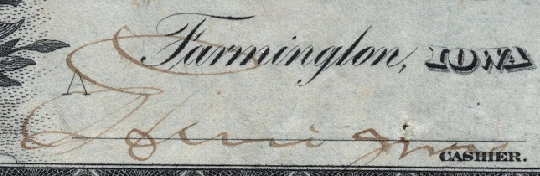 Farmington, IOWA
A
CASHIER.